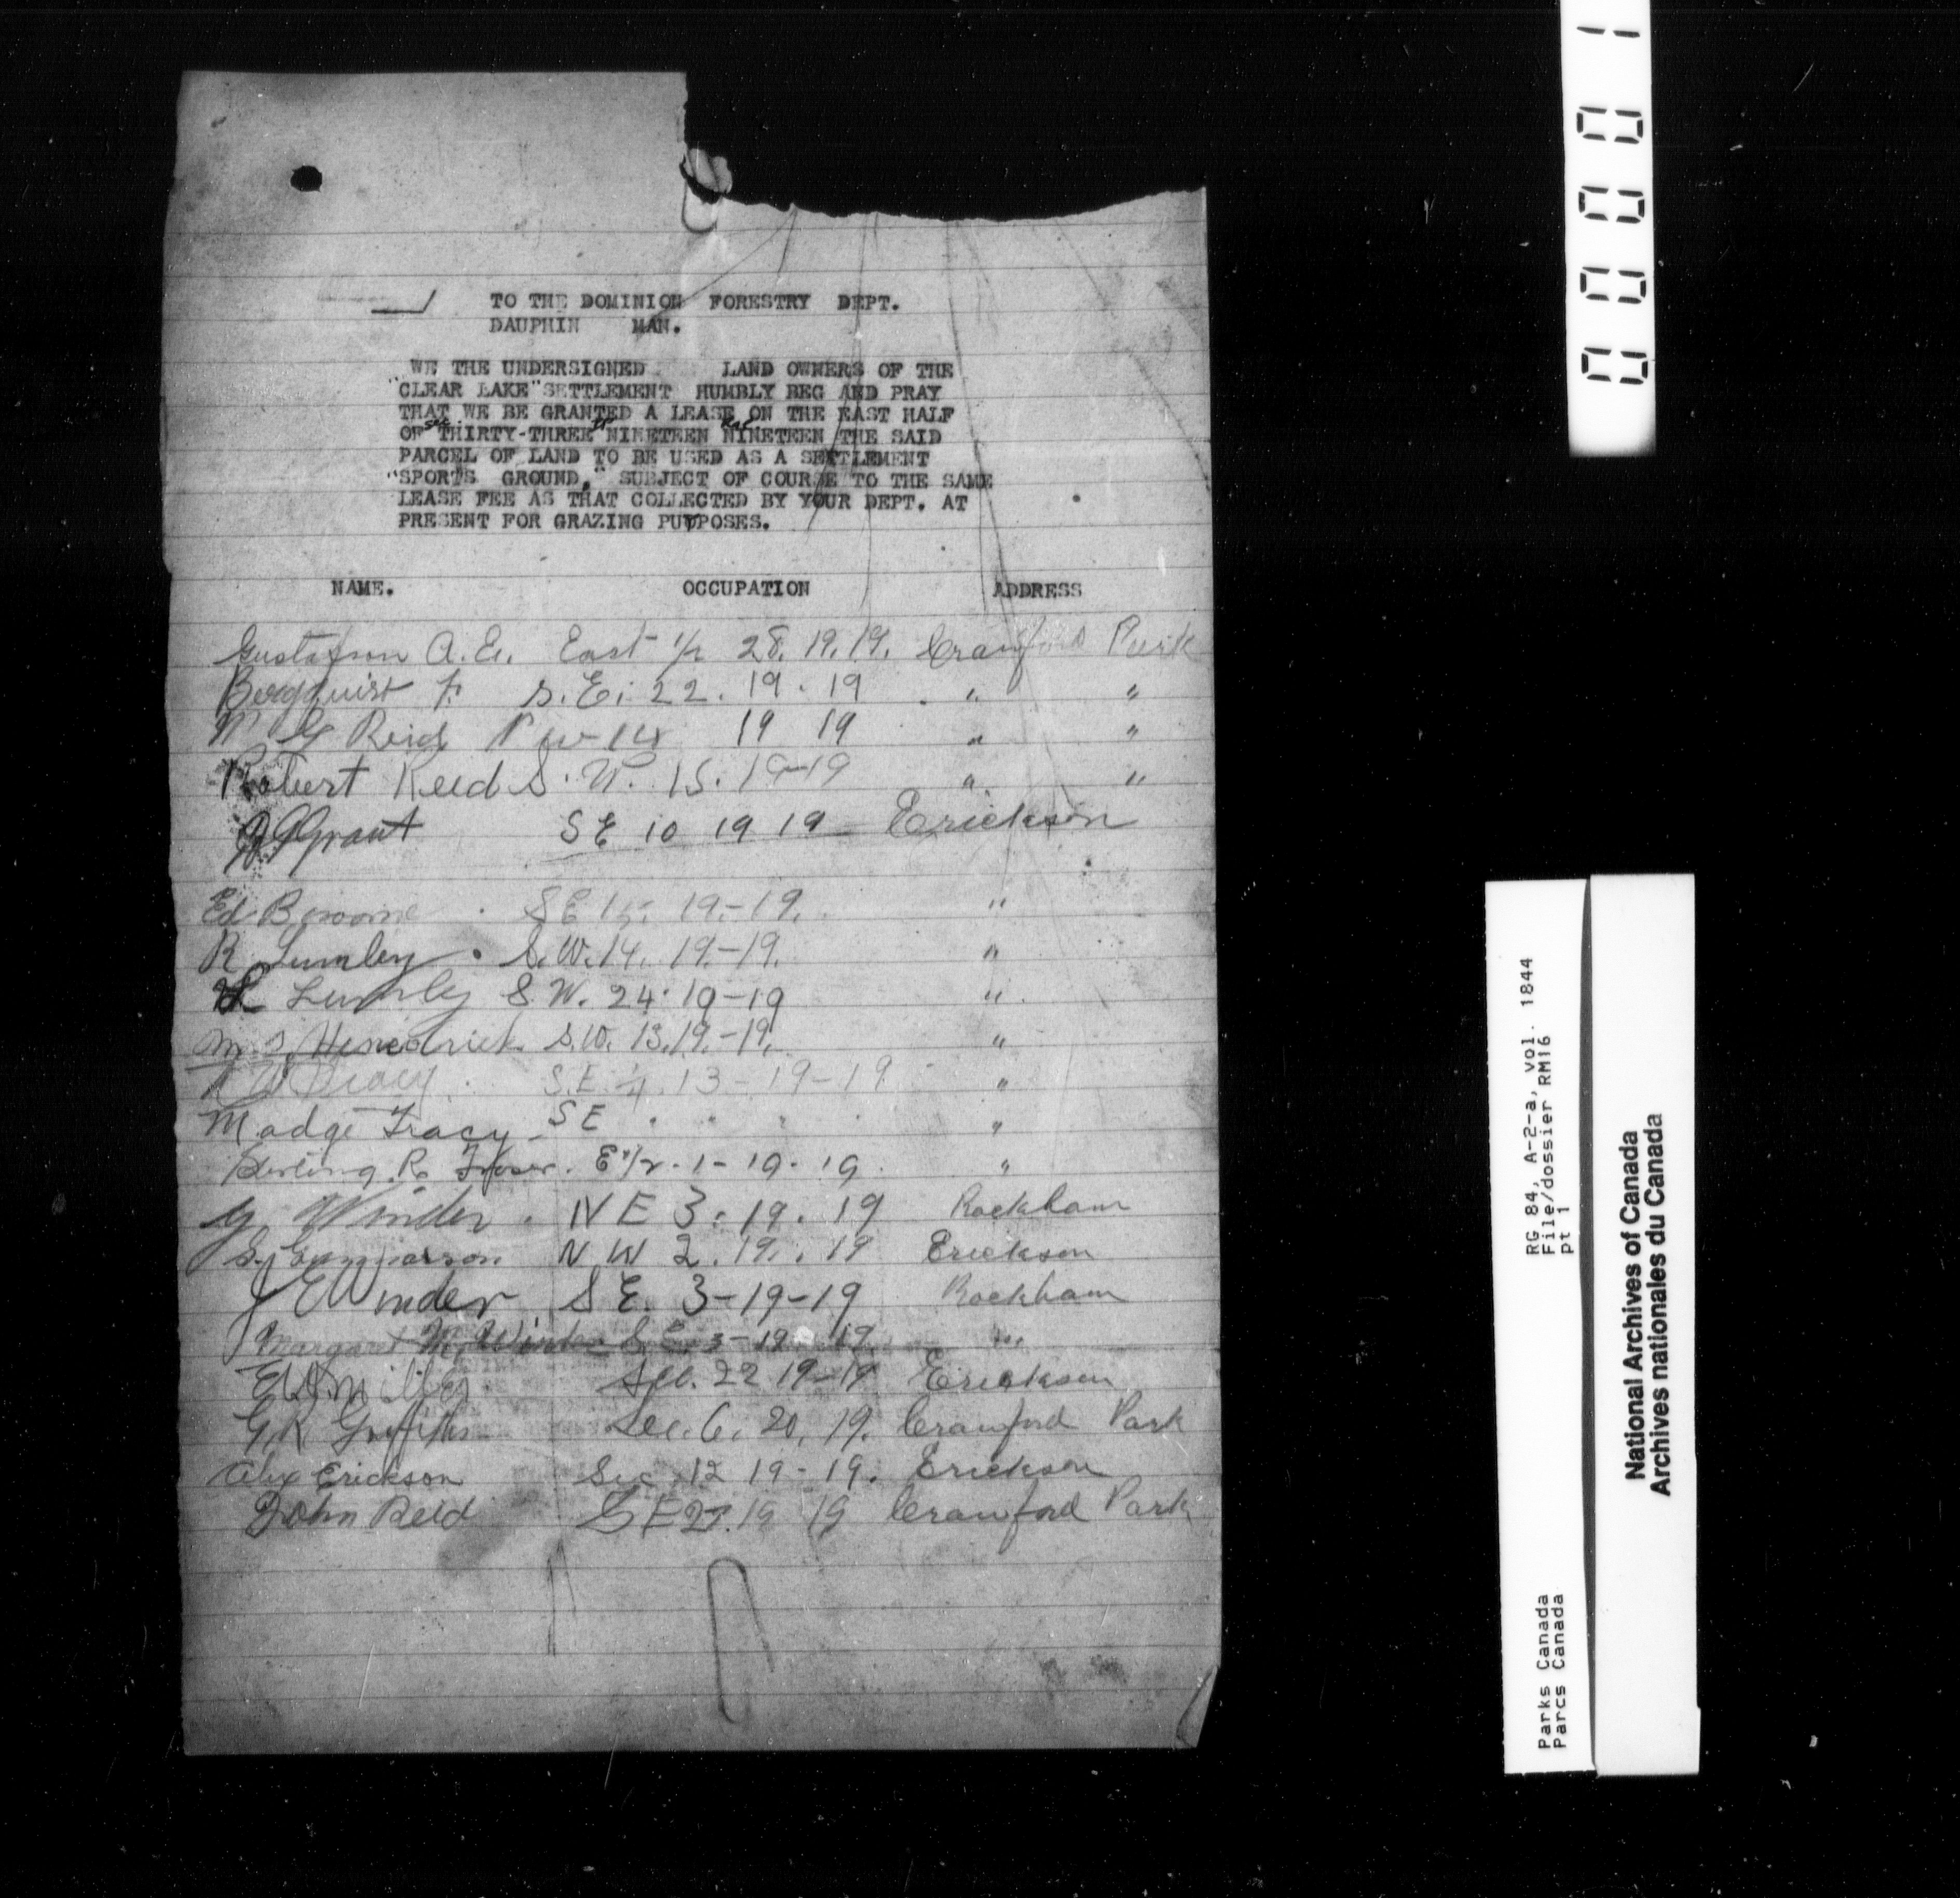 TO THE DOMINION FORESTRY DEPT.
DAUPHIN MAN.
WE THE UNDERSIGNED LAND OWNERS OF THE
"CLEAR LAKE" SETTLEMENT HUMBLY BEG AND PRAY
THAT WE BE GRANTED A LEASE ON THE EAST HALF
OF sec. THIRTY-THREE tp NINETEEN Rge NINETEEN THE SAID
PARCEL OF LAND TO BE USED AS A SETTLEMENT
"SPORTS GROUND," SUBJECT OF COURSE TO THE SAME
LEASE FEE AS THAT COLLECTED BY YOUR DEPT. AT
PRESENT FOR GRAZING PURPOSES.
NAME. OCCUPATION ADDRESS
Gustafson A.E. East 1/2 28. 19. 19. Crawford Park
Bergquist F. S.E. 22. 19. 19 " "
Reid 14 19 19 " "
Robert Reed S.W. 15. 19-19 " "
Grant SE 10 19 19 Erickson
Ed Broome SE 15. 19.-19. "
R Lumley S.W. 14. 19.-19. "
Lumley S.W. 24. 19-19 "
Hendrick S.W. 13. 19.-19. "
Tracy S.E. 1/4 13-19-19 "
Madge Tracy SE " " " "
R. Fraser. E 1/2. 1-19. 19. "
G. Winder. NE 3. 19. 19 Rackham
S. Gunnarson N W 2. 19. 19 Erickson
J E Winder S E. 3-19-19 Rackham
Margaret M. Winder S E 3-19 19 "
E Miller Sec. 22 19-19 Erickson
G.R Griffiths Sec. 6. 20. 19. Crawford Park
Alex Erickson Sec 12 19-19. Erickson
John Reid S E 27. 19 19 Crawford Park
00001
RG 84, A-2-a, vol. 1844
File/dossier RM16
pt 1
Parks Canada
Parcs Canada
National Archives of Canada
Archives nationales du Canada